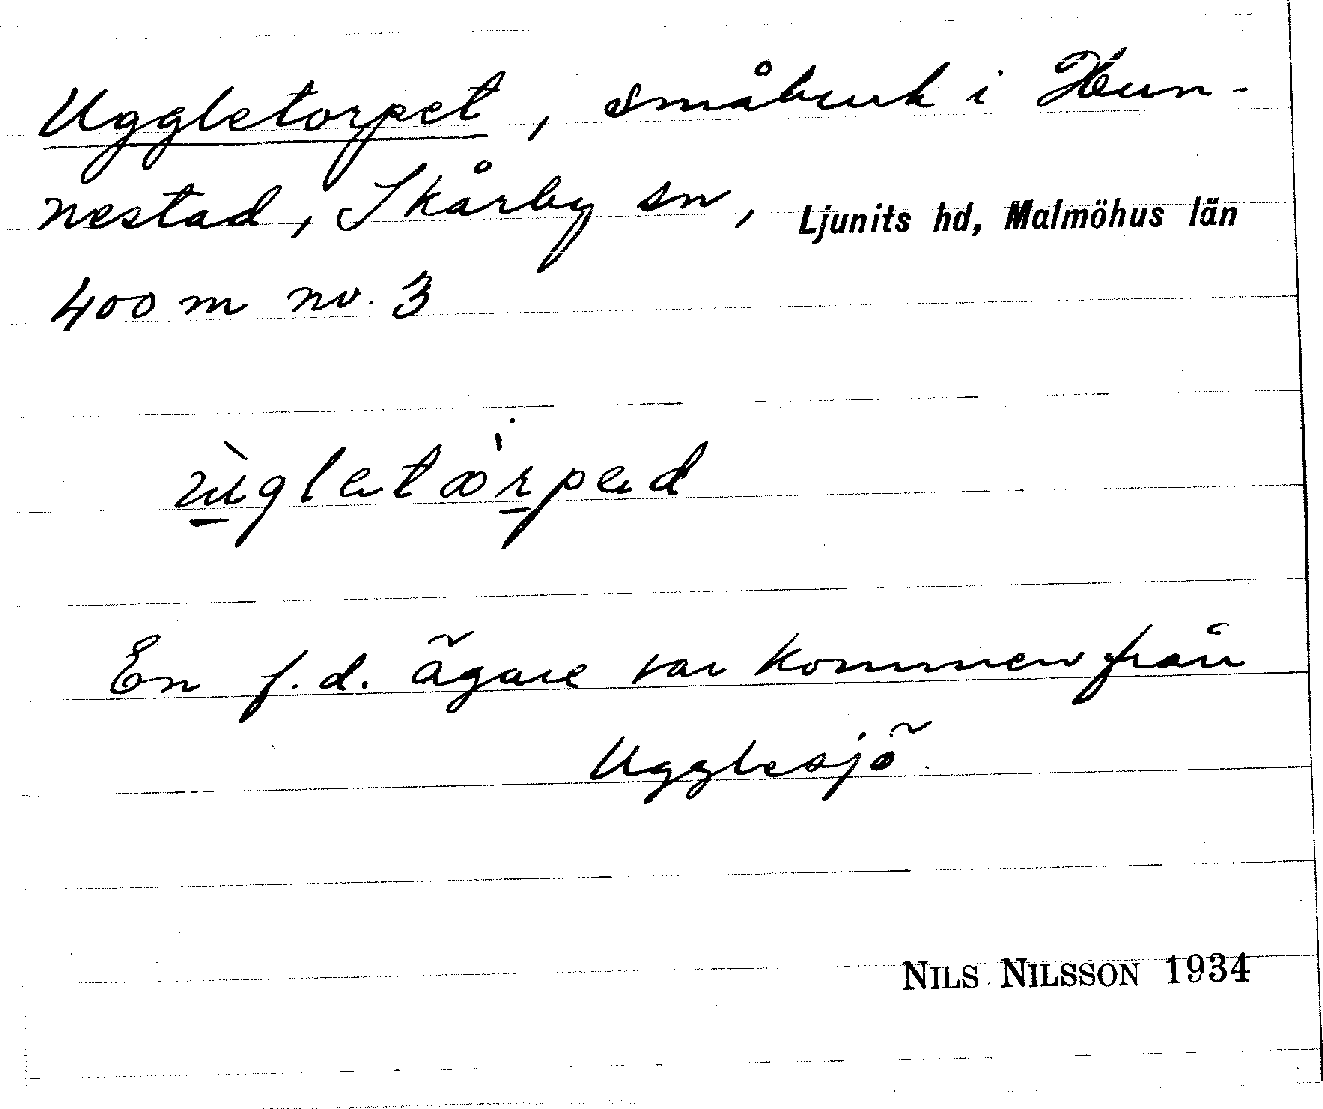 Uggletorpet, småbruk i Hun-
nestad, Skårby sn, Ljunits hd, Malmöhus län
400 m nv. 3
ùgletörped
En f.d. ägare var kommen från
Ugglesjö.
NILS NILSSON 1934